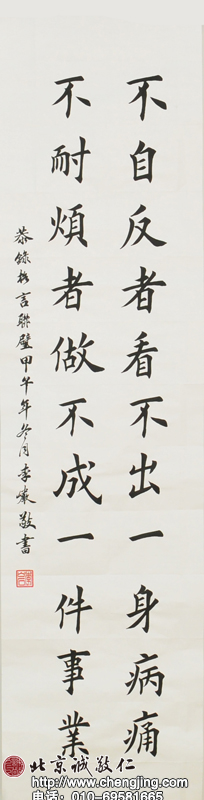 不自反者看不出一身病痛
不耐煩者做不成一件事業
恭錄格言聯璧甲午年冬月李嶽敬書
北京诚敬仁
http://www.chengjing.com
电话：010-69581665